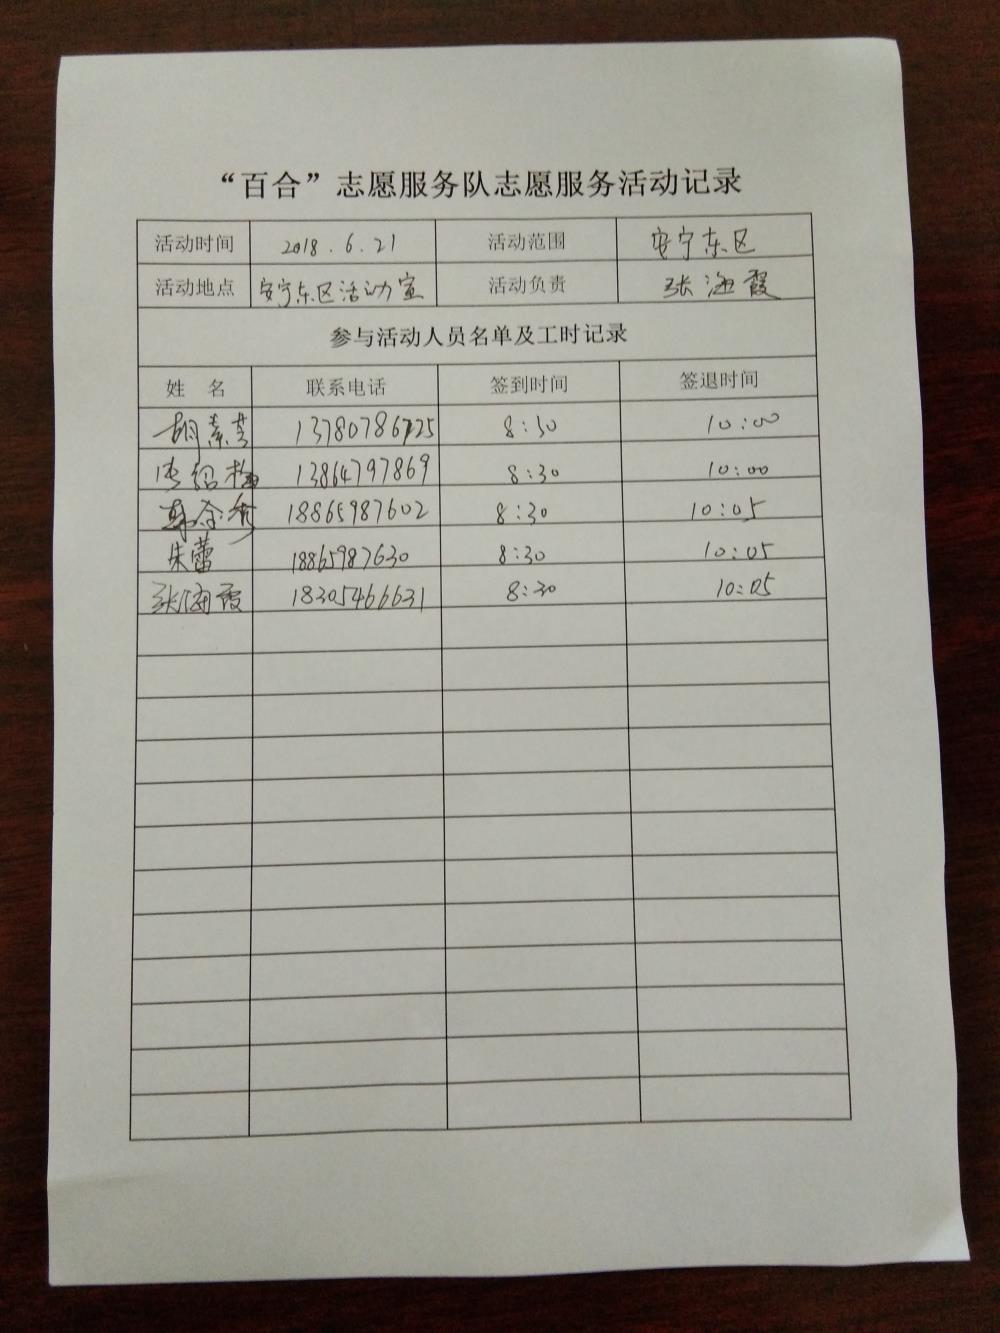 “百合”志愿服务队志愿服务活动记录
活动时间 2018.6.21 活动范围 安宁东区
活动地点 安宁东区活动室 活动负责 张海霞
参与活动人员名单及工时记录
姓 名 联系电话 签到时间 签退时间
胡素芳 13780786725 8:30 10:00
绍梅 13864797869 8:30 10:00
秀 18865987602 8:30 10:05
朱蕾 18865987630 8:30 10:05
张海霞 18305466631 8:30 10:05